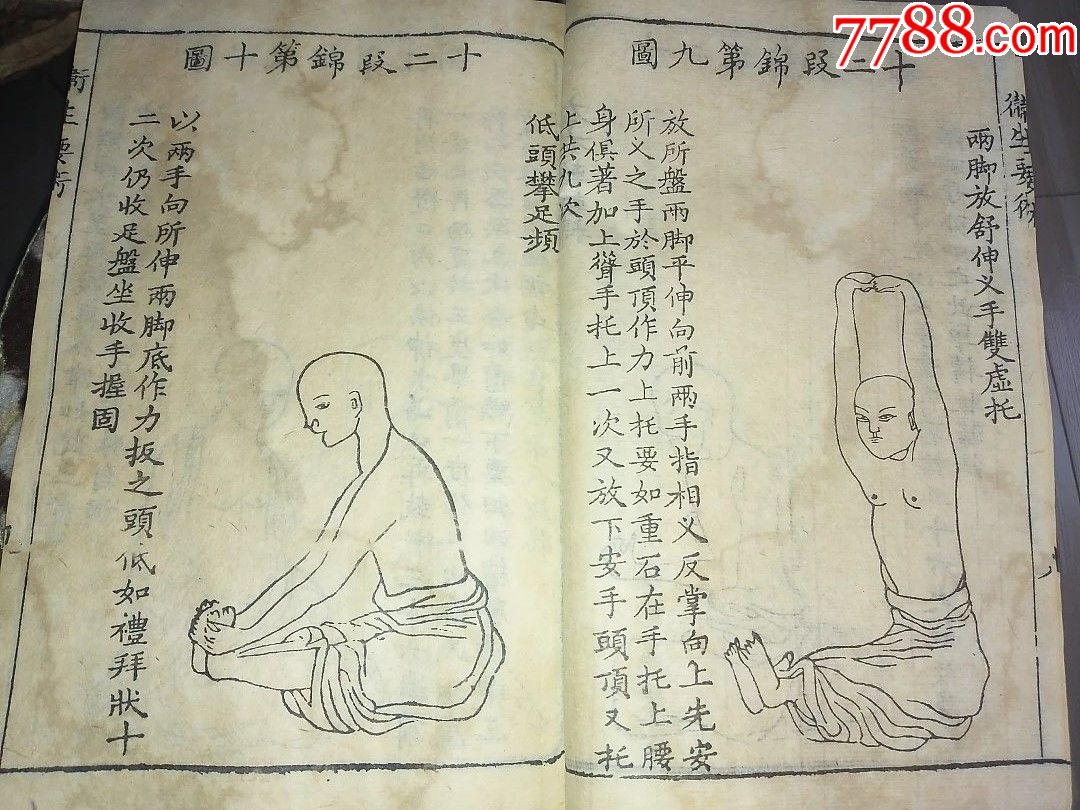 7788.com
衛生要術
十二段錦第九圖
兩脚放舒伸义手雙虛托
放所盤兩脚平伸向前兩手指相义反掌向上先安
所义之手於頭頂作力上托要如重石在手托上腰
身俱著加上聳手托上一次又放下安手頭頂又托
上共九次
低頭攀足頻
十二段錦第十圖
以兩手向所伸兩脚底作力扳之頭低如禮拜狀十
二次仍收足盤坐收手握固
衛生要